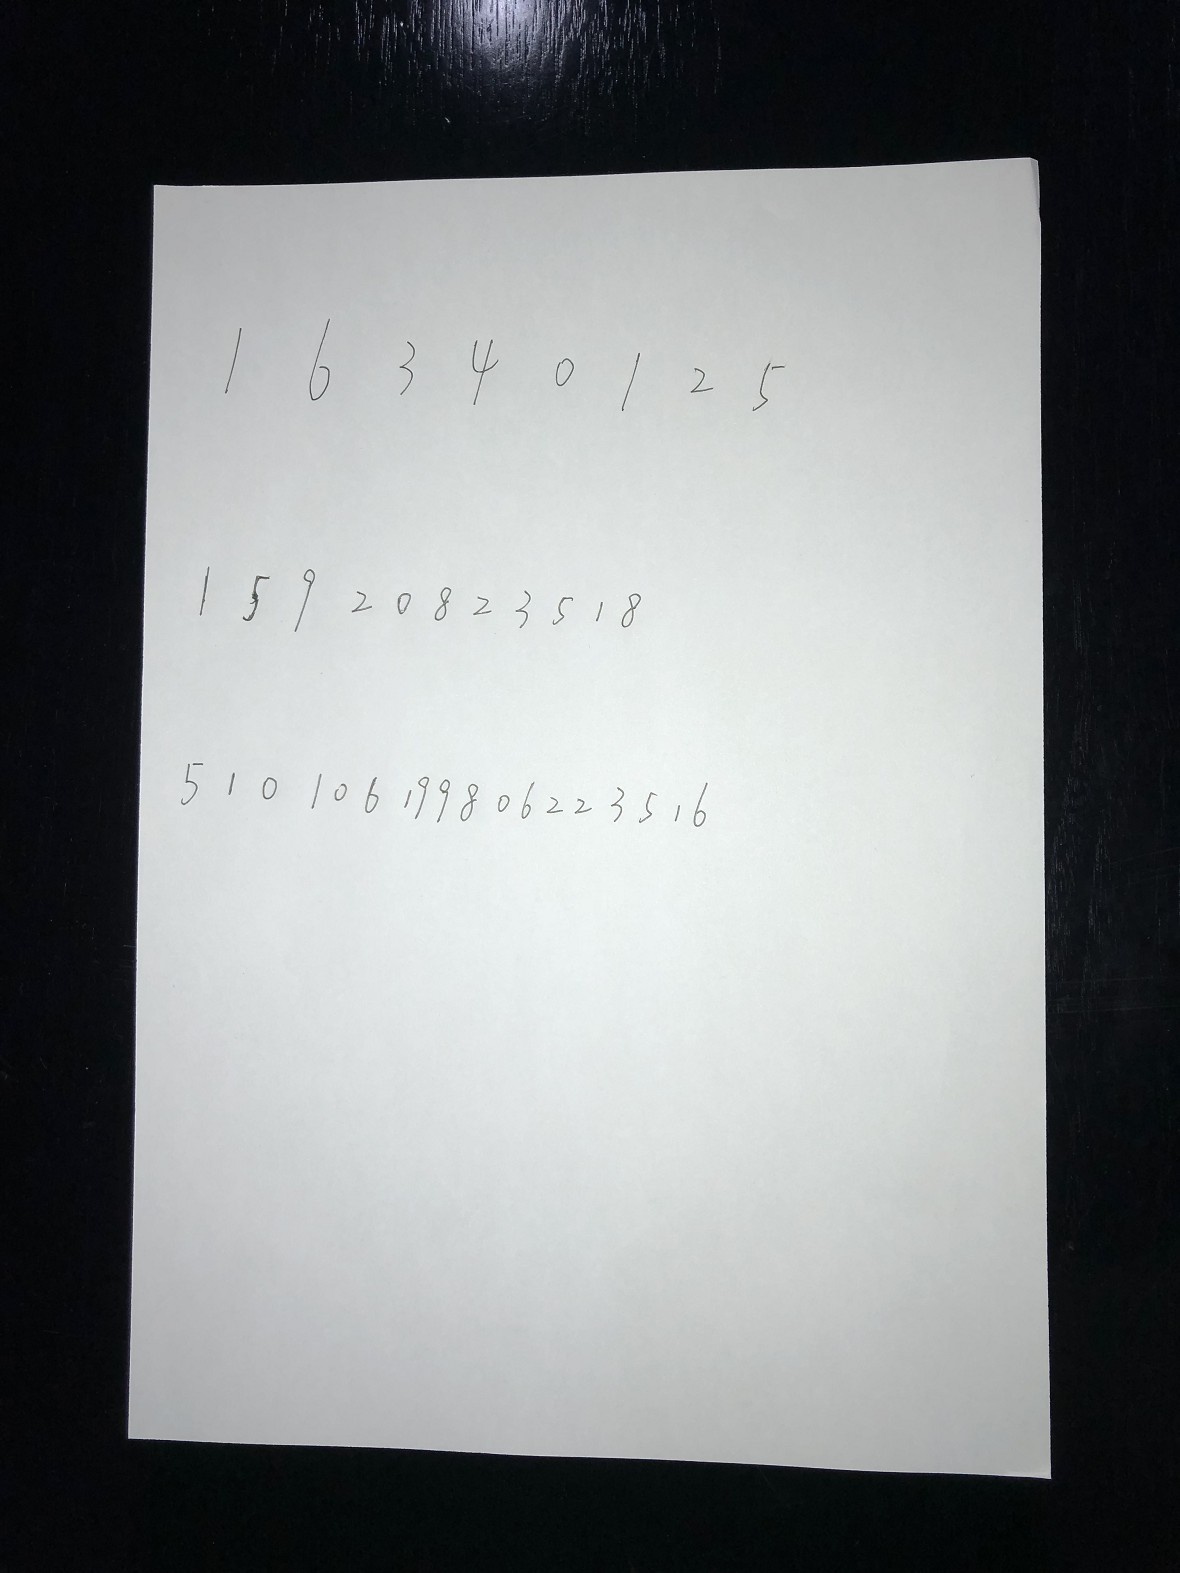 1 6 3 4 0 1 2 5
1 5 9 2 0 8 2 3 5 1 8
5 1 0 1 0 6 1 9 9 8 0 6 2 2 3 5 1 6